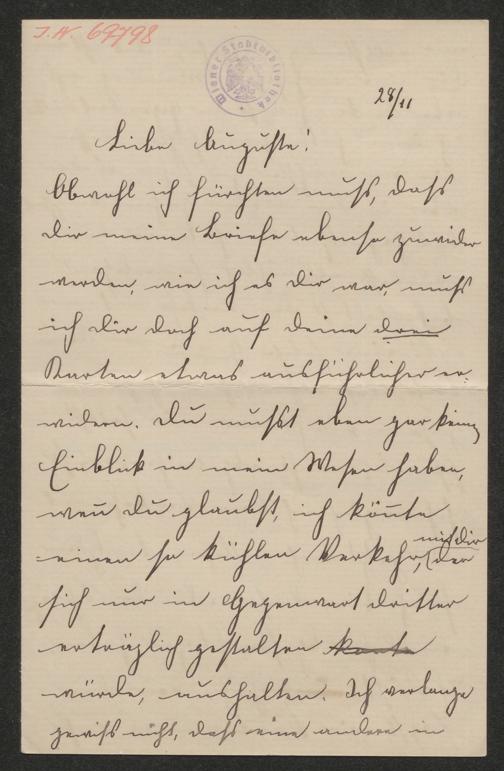 I. N. 69798
Wiener Stadtbibliothek
28/11
Liebe Auguste!
Obwohl ich fürchten muss, dass
dir meine Briefe ebenso zuwider
werden, wie ich es dir war, muss
ich dir doch auf deine drei
Karten etwas ausführlicher er-
widern. Du musst eben gar keinen
Einblick in mein Wesen haben,
wenn du glaubst, ich könnte
einen so kühlen Verkehr, mit dir
der
sich nur in Gegenwart dritter
erträglich gestalten
würde, aushalten. Ich verlange
gewiss nicht, dass eine andere in